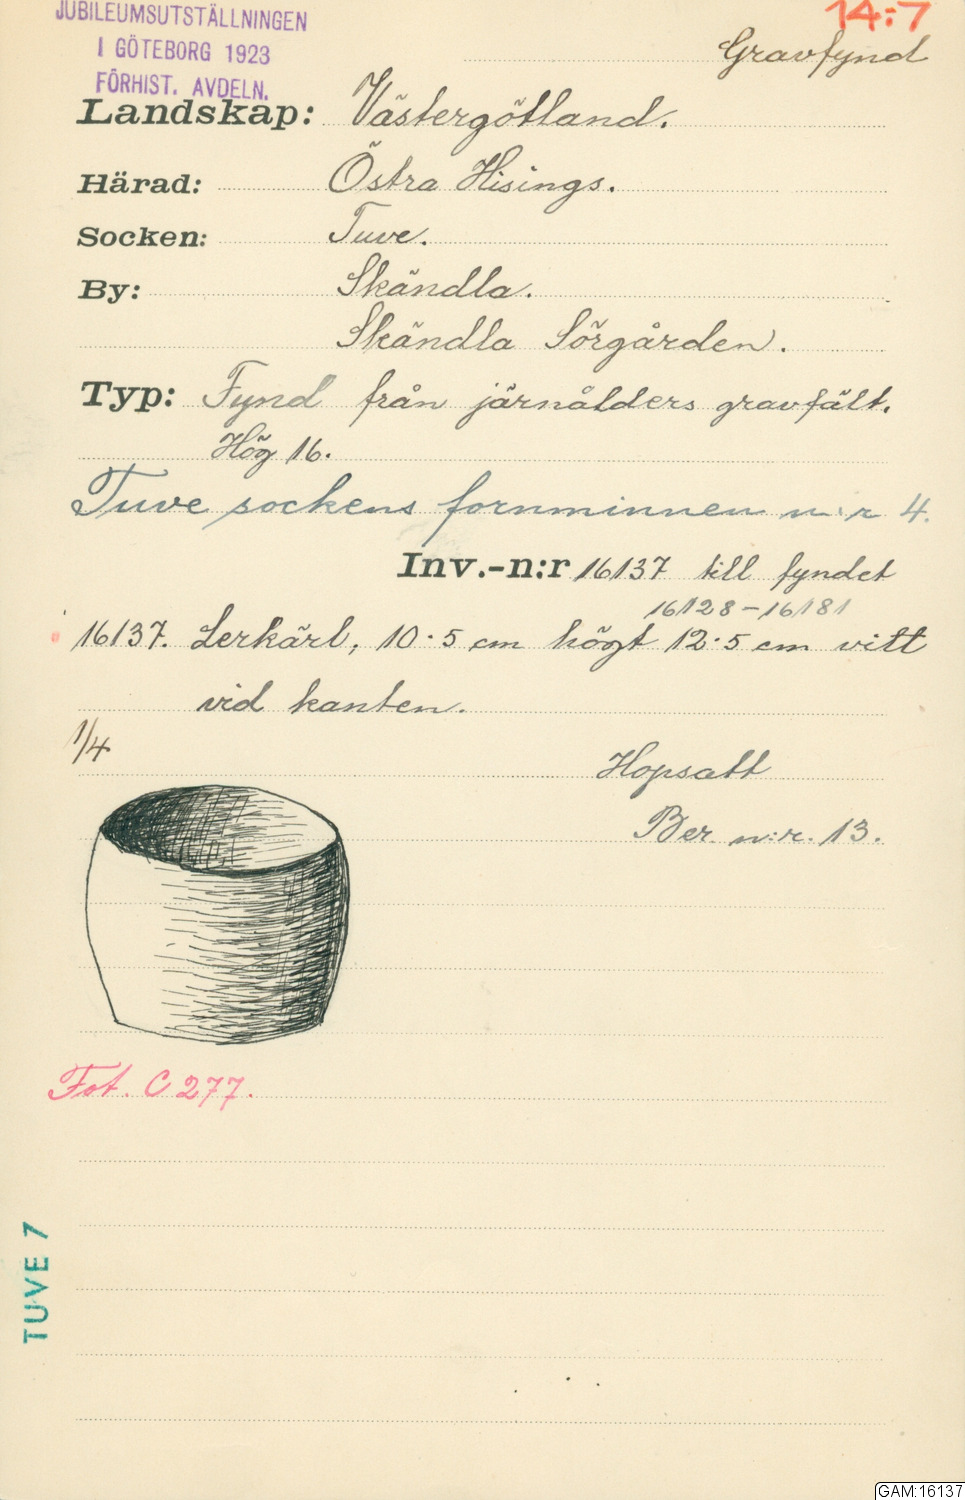 JUBILEUMSUTSTÄLLNINGEN
I GÖTEBORG 1923
FÖRHIST. AVDELN.
14:7
Gravfynd
Landskap: Västergötland.
Härad: Östra Hisings.
Socken: Tuve.
By: Skändla.
Skändla Sörgården.
Typ: Fynd från järnålders gravfält.
Hög 16.
Tuve sockens fornminnen n:r 4.
Inv.-n:r 16137 till fyndet
16128-16181
16137. Lerkärl, 10·5 cm högt 12·5 cm vitt
vid kanten.
1/4
Hopsatt
Ber. n:r. 13.
Fot. C 277.
TUVE 7
GAM:16137